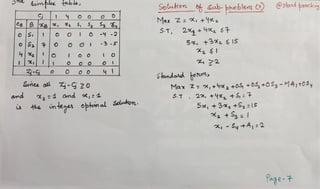 The Simplex table.
Cj 1 4 0 0 0 0
CB B XB x1 x2 S1 S2 S3 S4
0 S1 1 0 0 1 0 -4 -2
0 S2 7 0 0 0 1 -3 -5
4 x2 1 0 1 0 0 1 0
1 x1 1 1 0 0 0 0 1
Zj-Cj 0 0 0 0 4 1
Since all Zj-Cj ≥0
and x2=1 and x1=1
is the integer optimal solution.
Solution of sub-problem (2)
Max Z = x1+4x2
S.T. 2x1+4x2 ≤7
5x1+3x2 ≤15
x2 ≤1
x1 ≥2
Standard form,
Max Z = x1+4x2+0S1+0S2+0S3-MA1+0S4
S.T. 2x1+4x2+S1=7
5x1+3x2+S2=15
x2+S3=1
x1-S4+A1=2
Page-7